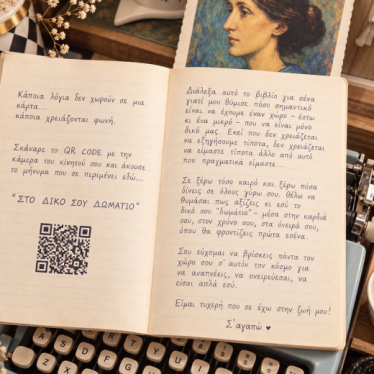 Κάποια λόγια δεν χωρούν σε μια
κάρτα...
κάποια χρειάζονται φωνή.
Σκάναρε το QR CODE με την
κάμερα του κινητού σου και άκουσε
το μήνυμα που σε περιμένει εδώ...
"ΣΤΟ ΔΙΚΟ ΣΟΥ ΔΩΜΑΤΙΟ"
Διάλεξα αυτό το βιβλίο για σένα
γιατί μου θύμισε πόσο σημαντικό
είναι να έχουμε έναν χώρο - έστω
κι ένα μικρό - που να είναι μόνο
δικό μας. Εκεί που δεν χρειάζεται
να εξηγήσουμε τίποτα, δεν χρειάζεται
να είμαστε τίποτα άλλο από αυτό
που πραγματικά είμαστε...
Σε ξέρω τόσο καιρό και ξέρω πόσα
δίνεις σε όλους γύρω σου. Θέλω να
θυμάσαι πως αξίζεις κι εσύ το
δικό σου "δωμάτιο" - μέσα στην καρδιά
σου, στον χρόνο σου, στα όνειρά σου,
όπου θα φροντίζεις πρώτα εσένα.
Σου εύχομαι να βρίσκεις πάντα τον
χώρο σου σ' αυτόν τον κόσμο για
να αναπνέεις, να ονειρεύεσαι, να
είσαι απλά εσύ.
Είμαι τυχερή που σε έχω στην ζωή μου!
Σ'αγαπώ ♥